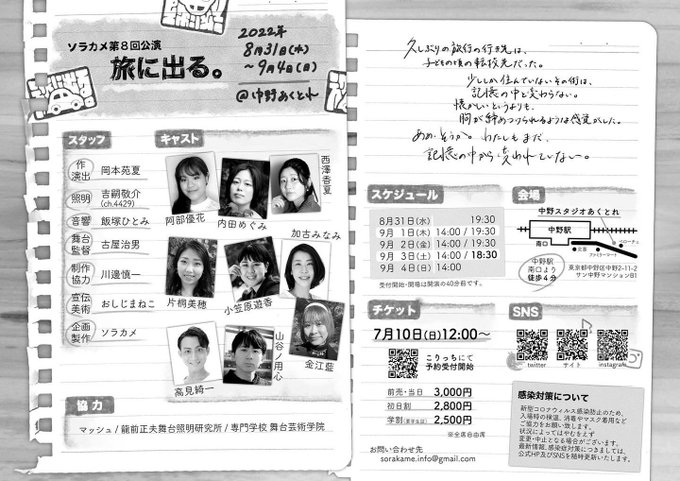 ソラカメ第8回公演
旅に出る。
2022年
8月31日(水)
～9月4日(日)
@中野あくとれ
スタッフ
作
演出
岡本苑夏
照明
吉嗣敬介
(ch.4429)
音響
飯塚ひとみ
舞台
監督
古屋治男
制作
協力
川邊慎一
宣伝
美術
おしじまねこ
企画
製作
ソラカメ
キャスト
阿部優花
内田めぐみ
西澤香夏
片桐美穂
小笠原遊香
加古みなみ
高見綺一
山谷ノ用心
金江藍
協力
マッシュ/龍前正夫舞台照明研究所/専門学校 舞台芸術学院
久しぶりの旅行の行き先は、
子どもの頃の転校先だった。
少ししか住んでいないその街は、
記憶の中と変わらない。
懐かしいというよりも、
胸が締めつけられるような感覚がした。
あぁ、そうか。わたしもまだ、
記憶の中から変われていない。
スケジュール
8月31日(水) 19:30
9月 1日(木) 14:00 / 19:30
9月 2日(金) 14:00 / 19:30
9月 3日(土) 14:00 / 18:30
9月 4日(日) 14:00
受付開始・開場は開演の40分前です。
会場
中野スタジオあくとれ
中野駅
南口
ベローチェ
ファミリーマート
中野駅
南口より
徒歩4分
東京都中野区中野2-11-2
サン中野マンションB1
チケット
7月10日(日)12:00～
こりっちにて
予約受付開始
前売・当日 3,000円
初日割 2,800円
学割(要学生証) 2,500円
※全席自由席
お問い合わせ先
sorakame.info@gmail.com
SNS
twitter
サイト
instagram
感染対策について
新型コロナウィルス感染防止のため、
入場時の検温、消毒やマスク着用など
ご協力をお願い致します。
状況によってはやむをえず
変更・中止となる場合がございます。
最新情報、感染症対策につきましては、
公式HP及びSNSを随時更新いたします。